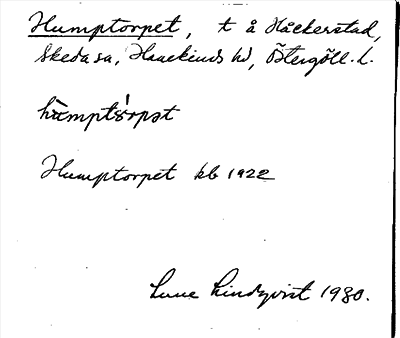 Humptorpet, t å Håckerstad,
Skeda sn, Hanekinds hd, Östergötl. l.
hùmptórpət
Humptorpet kb 1922
Lindqvist 1930.